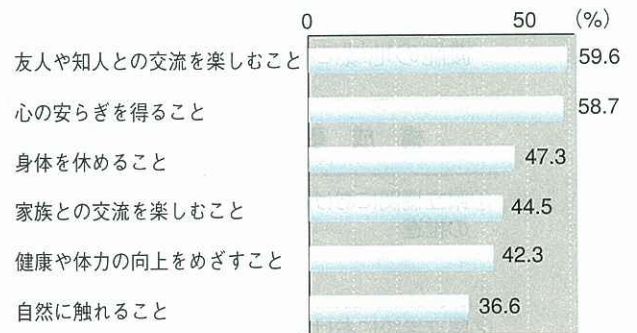 0 50 (%)
友人や知人との交流を楽しむこと 59.6
心の安らぎを得ること 58.7
身体を休めること 47.3
家族との交流を楽しむこと 44.5
健康や体力の向上をめざすこと 42.3
自然に触れること 36.6